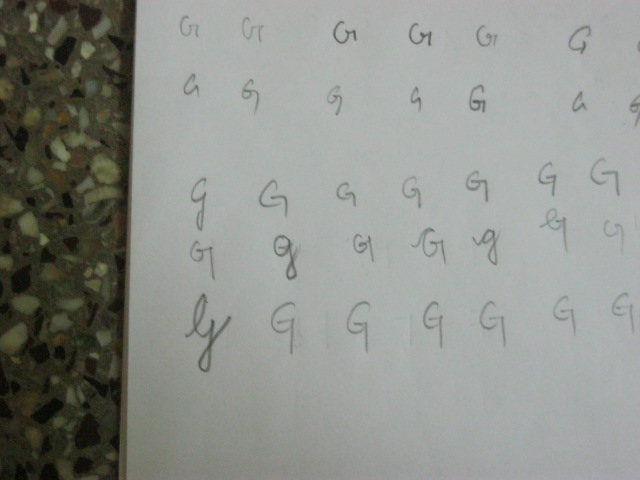 G G G G G G
G G G G G G
g G G G G G G
G g G G g G G
G G G G G G G